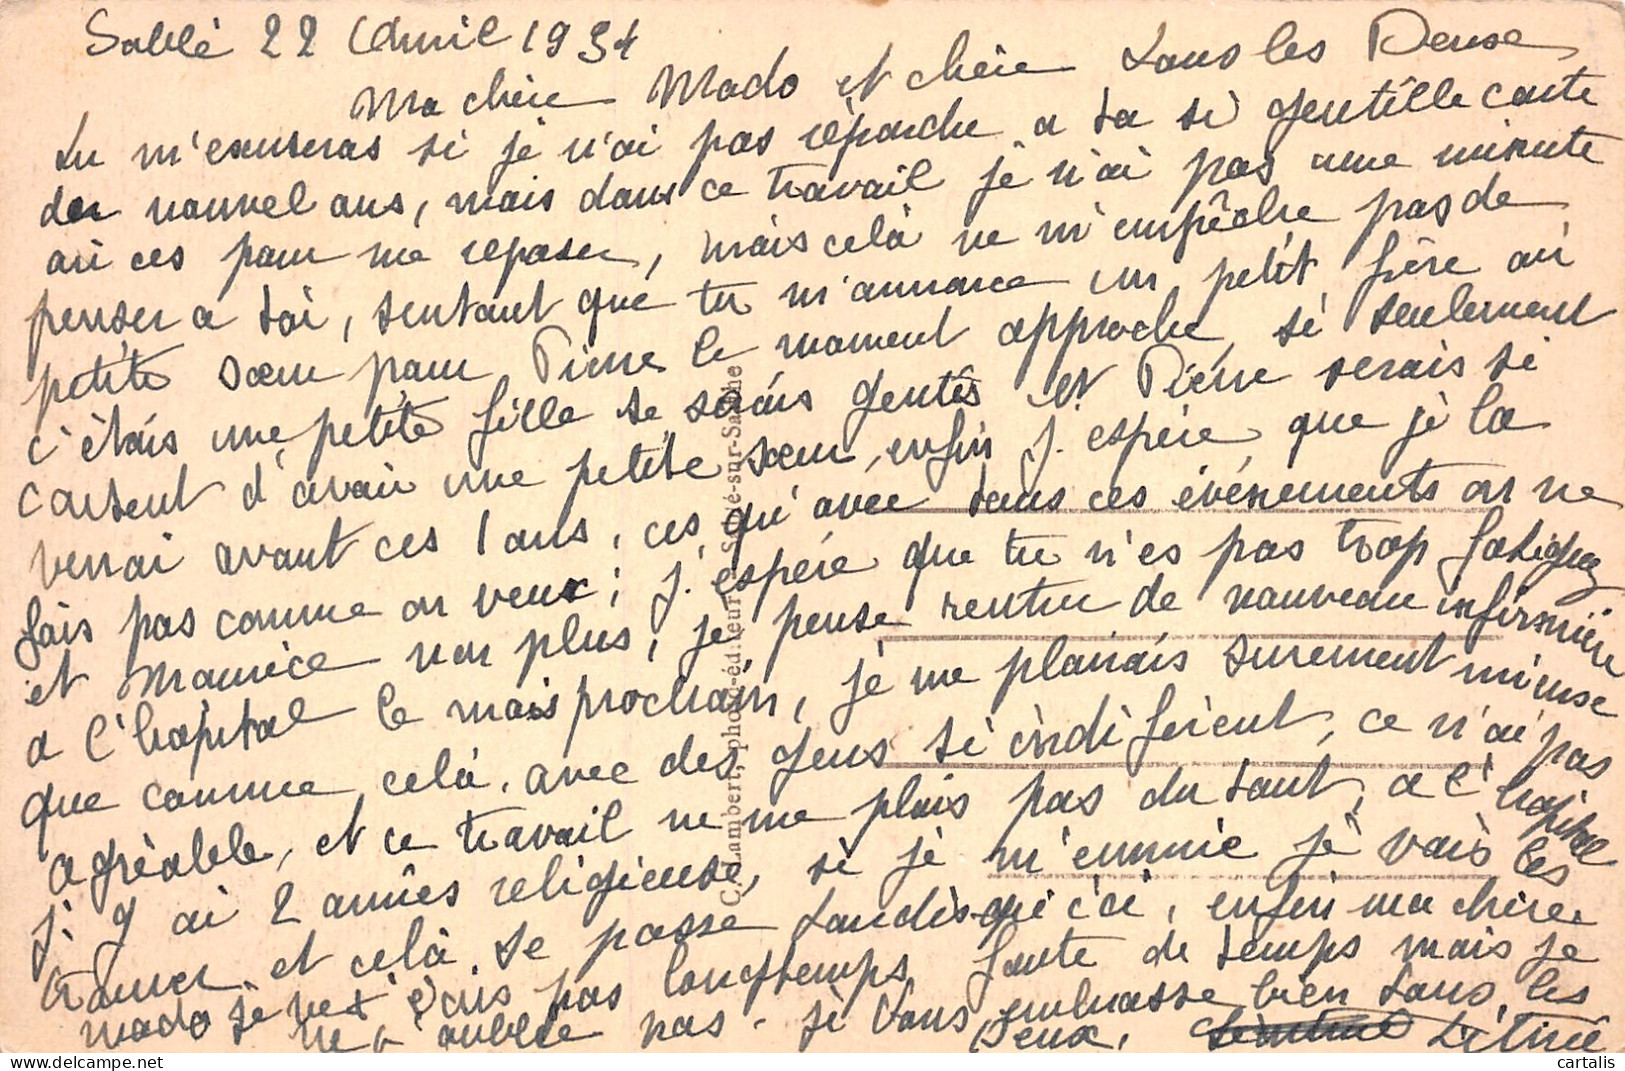 Sablé 22 Avril 1934
Ma chère Mado et chère tous les Deuse
tu m'excuseras si je n'ai pas répondu a ta si gentille carte
der nouvel ans, mais dans ce travail je n'ai pas une minute
ai ces pour me reposer, mais celà ne m'empêche pas de
penser a toi, sentant que tu m'annonce un petit frère ou
petite sœur pour Pierre le moment approche, si seulement
c'étais une petite fille se serais gentis et Pierre serais si
content d'avoir une petite sœur, enfin j'espère que je la
verrai avant ces 1 ans, ces qu'avec tous ces événements on ne
fais pas comme on veux; j'espère que tu n'es pas trop fatiguez
et Maurice non plus, je pense rentrer de nouveau infirmière
a l'hopital le mois prochain, je me plairais surement mieuse
que comme celà avec des gens si indiférent, ce n'ai pas
agréable, et ce travail ne me plais pas du tout, a l'hopital
j'y ai 2 années religieuse, si je m'ennuie je vais les
trouver et celà se passe tandis que ici, enfin ma chère
mado je ne t'écris pas longtemps faute de temps mais je
ne t'oublie pas. je vous embrasse bien tous les
Deux. Titine
C. Lambert, phot.-éditeur, Sablé-sur-Sarthe
cartalis